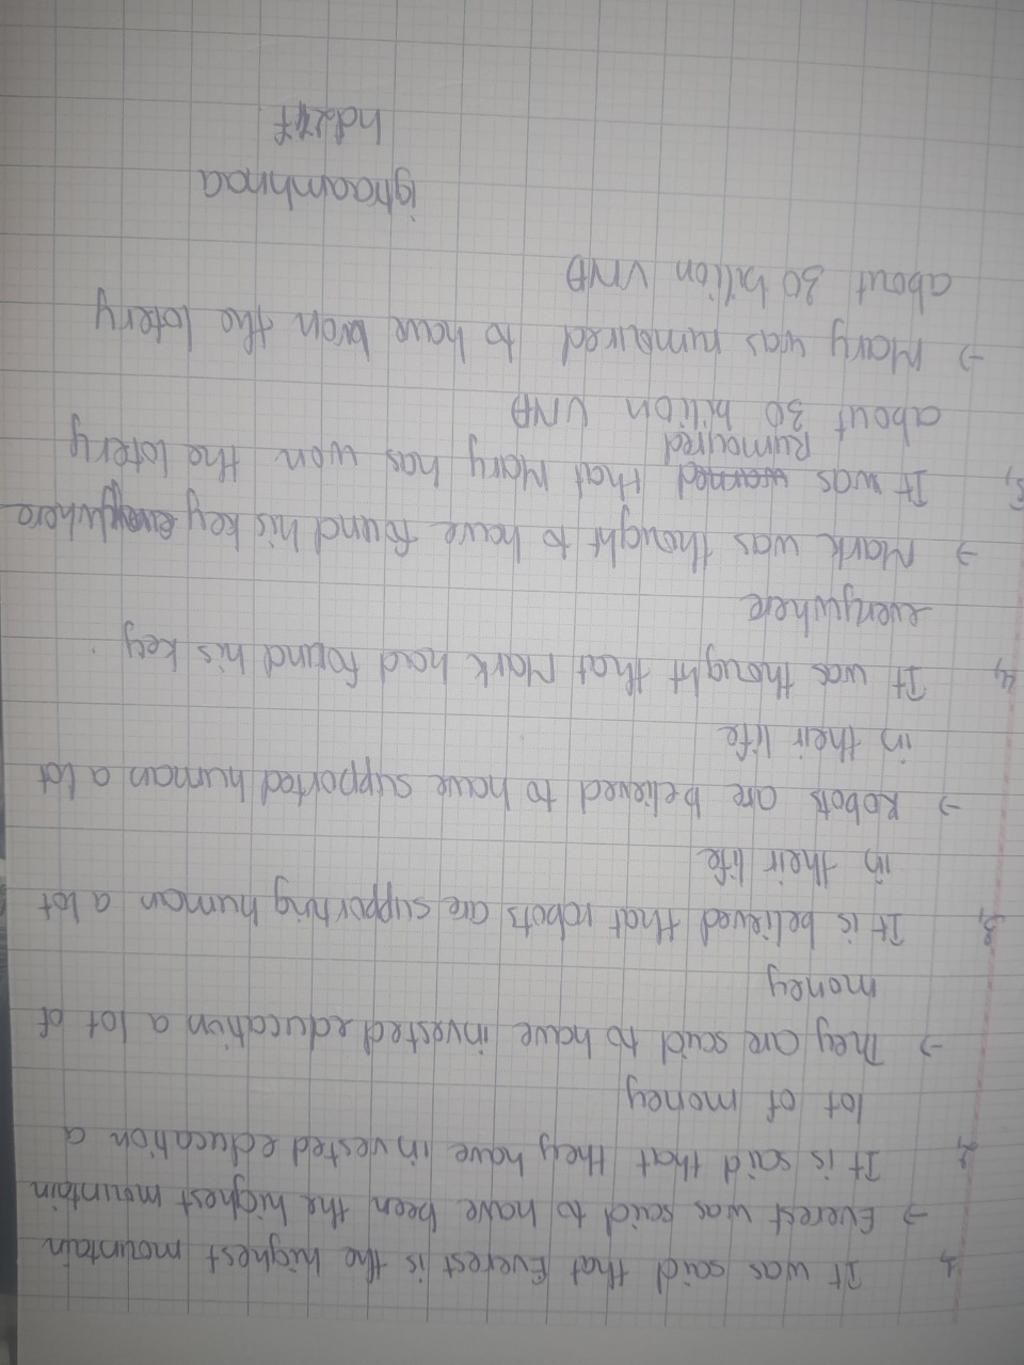 1, It was said that Everest is the highest mountain
→ Everest was said to have been the highest mountain
2, It is said that they have invested education a
lot of money
→ They are said to have invested education a lot of
money
3, It is believed that robots are supporting human a lot
in their life
→ Robots are believed to have supported human a lot
in their life
4, It was thought that Mark had found his key
everywhere
→ Mark was thought to have found his key everywhere
5, It was rumoured that Mary has won the lotery
about 30 bilion VNĐ
→ Mary was rumoured to have won the lotery
about 30 bilion VNĐ